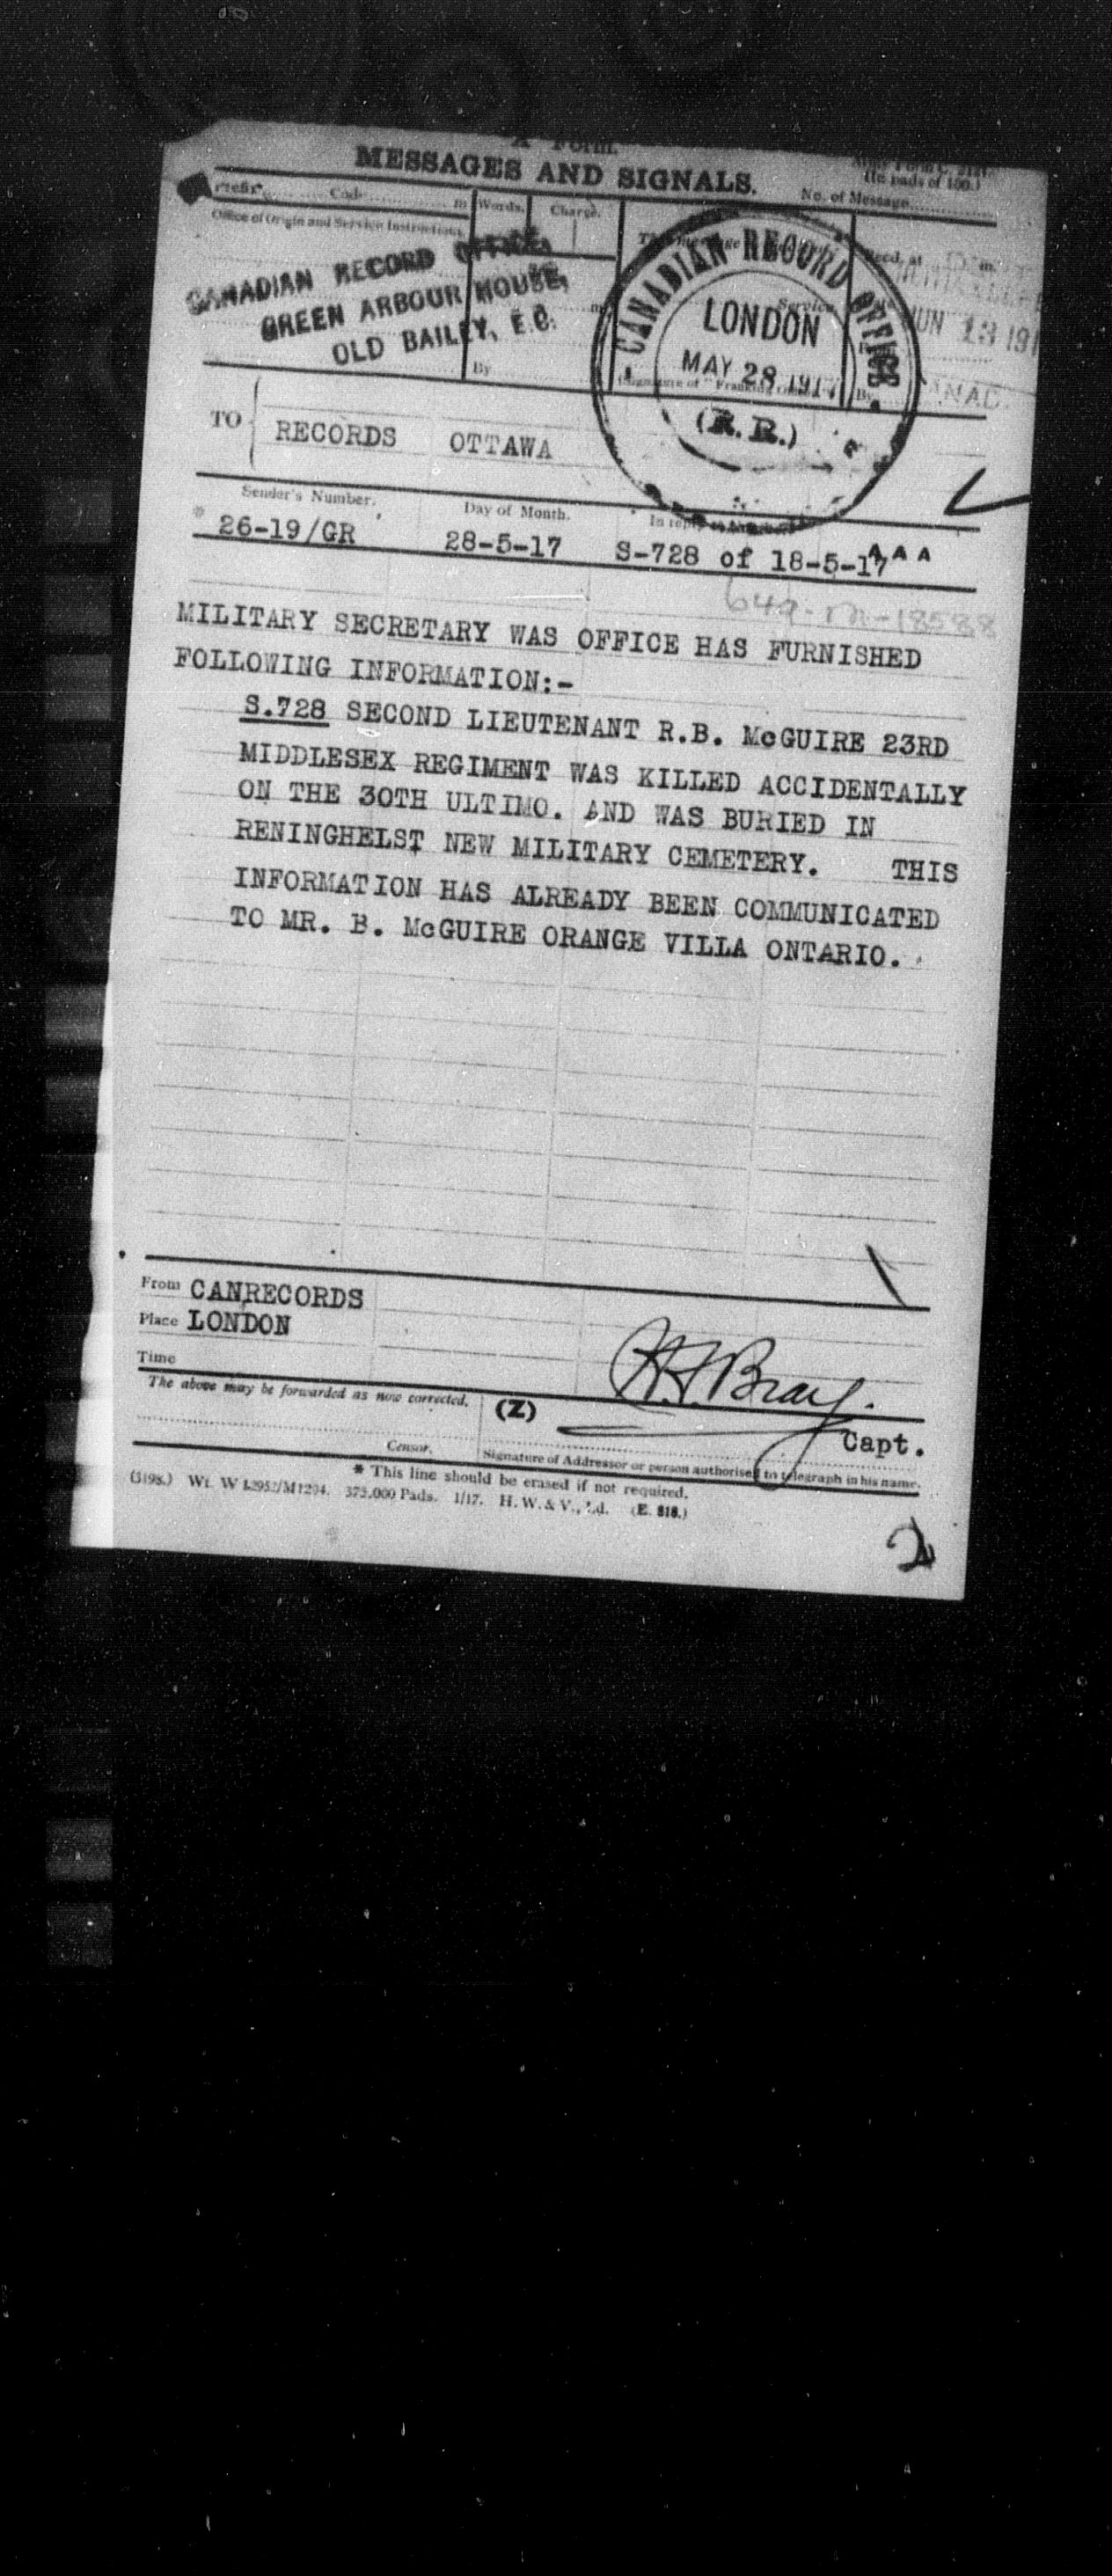 "A" Form.
MESSAGES AND SIGNALS.
Army Form C. 2121.
(In pads of 100.)
No. of Message
Prefix Code m Words. Charge.
Office of Origin and Service Instructions.
CANADIAN RECORD OFFICE,
GREEN ARBOUR HOUSE,
OLD BAILEY, E.C.
By
Service
Recd. at m.
CANADIAN RECORD OFFICE
LONDON
MAY 28 1917
(R.R.)
JUN 13 191
By
TO RECORDS OTTAWA
Sender's Number. Day of Month. In reply to Number.
* 26-19/GR 28-5-17 S-728 of 18-5-17 AAA
649-M-18588
MILITARY SECRETARY WAS OFFICE HAS FURNISHED
FOLLOWING INFORMATION:-
S.728 SECOND LIEUTENANT R.B. McGUIRE 23RD
MIDDLESEX REGIMENT WAS KILLED ACCIDENTALLY
ON THE 30TH ULTIMO. AND WAS BURIED IN
RENINGHELST NEW MILITARY CEMETERY. THIS
INFORMATION HAS ALREADY BEEN COMMUNICATED
TO MR. B. McGUIRE ORANGE VILLA ONTARIO.
From CANRECORDS
Place LONDON
Time
The above may be forwarded as now corrected. (Z)
Bray.
Capt.
Censor. Signature of Addressor or person authorised to telegraph in his name.
* This line should be erased if not required.
(3198.) Wt. W 12952/M1294. 375.000 Pads. 1/17. H. W. & V., Ld. (E. 818.)
2